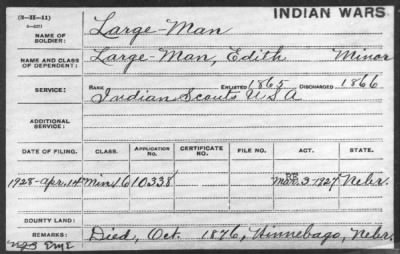 (3-II-11)
INDIAN WARS
NAME OF SOLDIER: Large-Man
NAME AND CLASS OF DEPENDENT: Large-Man, Edith Minor
SERVICE: RANK Indian Scouts U S A ENLISTED 1865 DISCHARGED 1866
ADDITIONAL SERVICE:
DATE OF FILING. CLASS. APPLICATION NO. CERTIFICATE NO. FILE NO. ACT. STATE.
1928-Apr. 14 Min. 1610338 Mar. 3-1927 Nebr.
COUNTY LAND:
REMARKS: Died, Oct. 1876, Winnebago, Nebr.